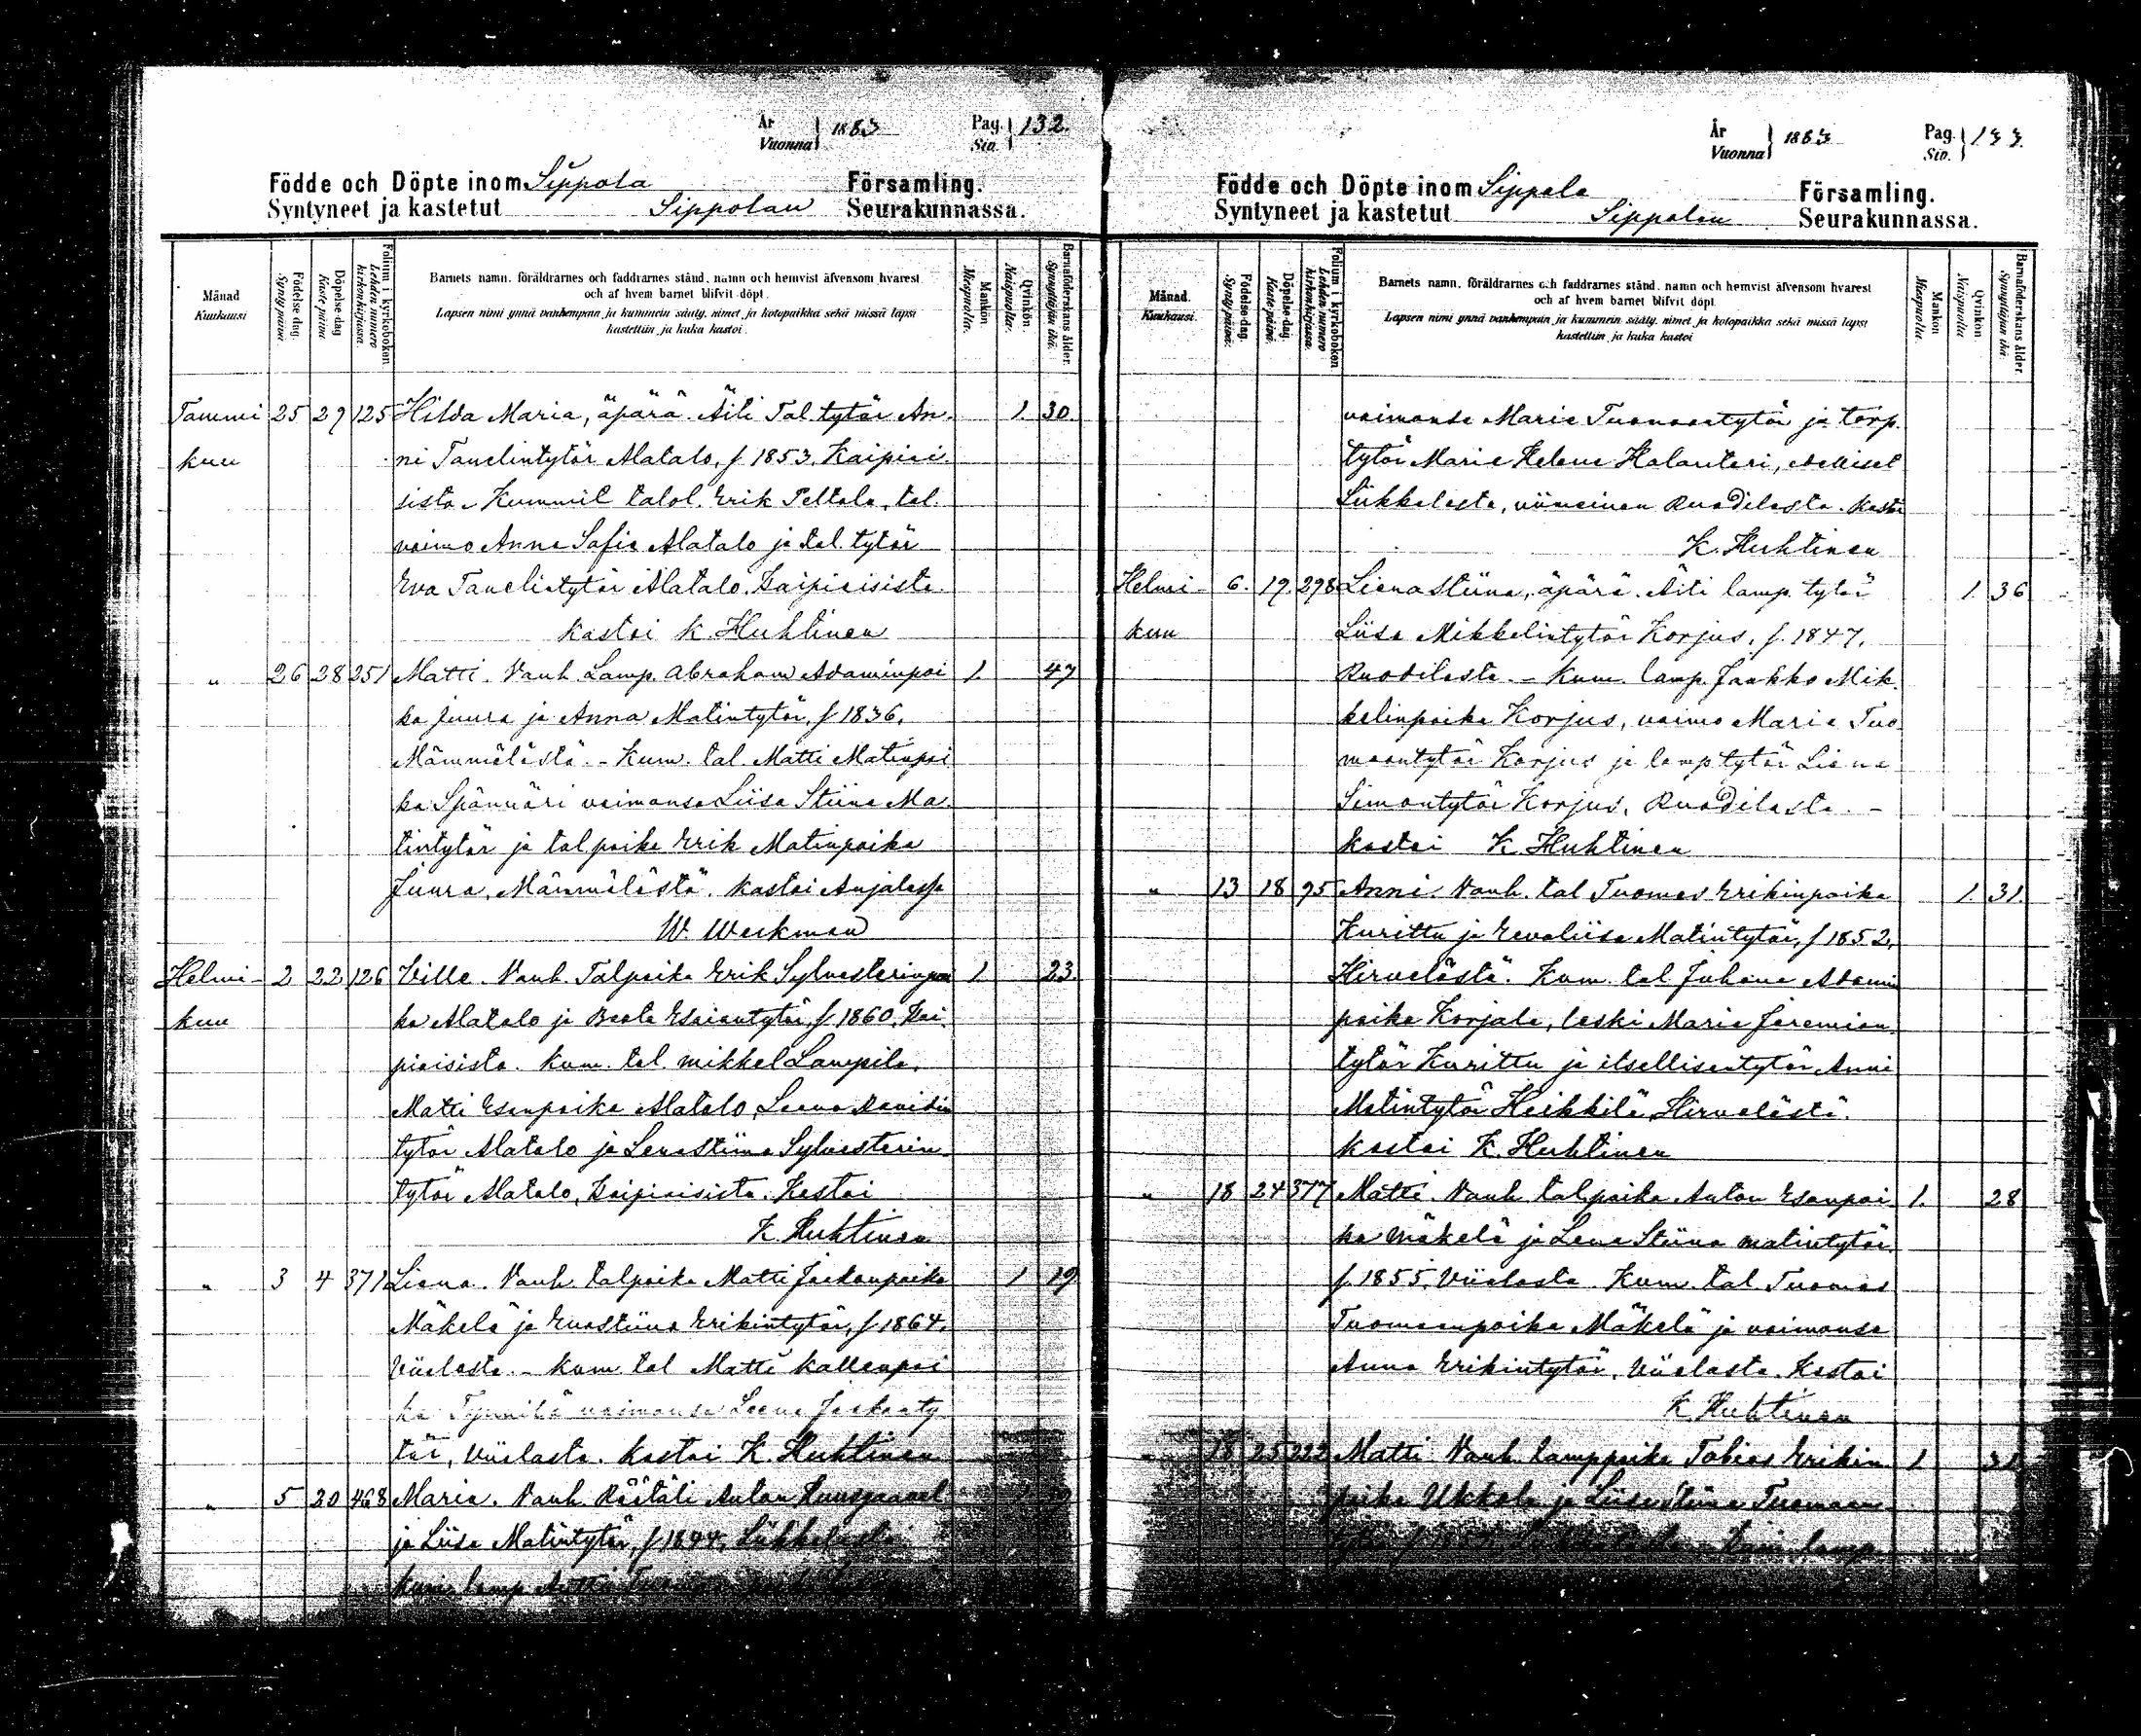 År
Vuonna 1883 Pag. 132.
Siv.
Födde och Döpte inom Sippola Församling.
Syntyneet ja kastetut Sippolan Seurakunnassa.
Månad
Kuukausi
Födelse dag.
Synty päivä.
Döpelse dag
Kaste päivä
Folium i kyrkoboken
Lehden numero kirkonkirjassa
Barnets namn, föräldrarnes och faddrarnes stånd, namn och hemvist äfvensom hvarest
och af hvem barnet blifvit döpt.
Lapsen nimi ynnä vanhempain ja kummein sääty, nimet ja kotopaikka sekä missä lapsi
kastettiin ja kuka kastoi.
Mankön
Miespuolia.
Qvinkön.
Naispuolia.
Barnaföderskans ålder.
Synnyttäjän ikä.
Tammi 25 29 125 Hilda Maria, äpärä. Äiti Tal. tytär An- 1. 30.
kuu ni Tanelintytär Alatalo, f 1853, Kaipiai-
sista. Kummit talol. Erik Peltola, tal.
vaimo Anna Sofia Alatalo ja tal. tytär
Eva Tanelintytär Alatalo, Kaipiaisista.
Kastoi K. Huhtinen
" 26 28 251 Matti. Vanh. Lamp. Abraham Adaminpoi 1. 47
ka Juura ja Anna Matintytär, f 1836,
Mämmälästä. - Kum. tal. Matti Matinpoi
ka Spännäri vaimonsa Liisa Stiina Ma
tintytär ja tal poika Erik Matinpoika
Juura, Mämmälästä. Kastoi Anjalassa
W. Weckman
Helmi- 2 22 126 Ville. Vanh. Talpoika Erik Sylvesterinpoi 1. 23.
kuu ka Alatalo ja Beata Esaiantytär, f 1860, Kai-
piaisista. Kum. tal. Mikkel Lampila,
Matti Esanpoika Alatalo, Leena Davidin
tytär Alatalo ja Lenastiina Sylvesterin
tytär Alatalo, Kaipiaisista. Kastoi
K. Huhtinen
" 3 4 371 Liena. Vanh. talpoika Matti Jaakonpoika 1 19
Mäkelä ja Evastiina Erikintytär, f 1864,
Viialasta. - Kum. tal Matti Kallenpoi
ka vaimonsa Leena Jaakonty
tär, Viialasta. Kastoi K. Huhtinen
" 5 20 468 Maria. Vanh. Räätäli Anton
ja Liisa Matintytär, f 1844, Liikkalasta
Kum. lamp. Antti
År
Vuonna 1883 Pag. 133.
Siv.
Födde och Döpte inom Sippola Församling.
Syntyneet ja kastetut Sippolan Seurakunnassa.
Månad.
Kuukausi.
Födelse-dag.
Synty päivä.
Döpelse-dag.
Kaste päivä.
Folium i kyrkoboken
Lehden numero kirkonkirjassa.
Barnets namn, föräldrarnes och faddrarnes stånd, namn och hemvist äfvensom hvarest
och af hvem barnet blifvit döpt.
Lapsen nimi ynnä vanhempain ja kummein sääty, nimet ja kotopaikka sekä missä lapsi
kastettiin ja kuka kastoi
Mankön
Miespuolia.
Qvinkön
Naispuolia
Barnaföderskans ålder.
Synnyttäjän ikä.
vaimonsa Maria Tuomaantytär ja torp.
tytär Maria Helena Halanteri, edelliset
Liikkalasta, viimeinen Ruodilasta. Kastoi
K. Huhtinen
Helmi- 6. 19. 298 Liena Stiina, äpärä. Äiti lamp. tytär 1. 36
kuu Liisa Mikkelintytär Korjus, f. 1847,
Ruodilasta. - Kum. lamp. Jaakko Mik-
kelinpoika Korjus, vaimo Maria Tuo-
maantytär Korjus ja lamp tytär Liena
Simontytär Korjus, Ruodilasta. -
Kastoi K. Huhtinen
" 13 18 95 Anni. Vanh. tal Tuomas Erikinpoika 1. 31.
Kurittu ja Eevaliisa Matintytär, f 1852,
Hirvelästä. Kum. tal Juhana Adamin
poika Korjala, leski Maria Jeremian
tytär Kurittu ja itsellisentytär Anni
Matintytär Heikkilä, Hirvelästä.
Kastoi K. Huhtinen
" 18 24 377 Matti. Vanh. talpoika Anton Esanpoi- 1. 28
ka Mäkelä ja Lena Stiina Matintytär
f. 1855, Viialasta. Kum. tal. Tuomas
Tuomaanpoika Mäkelä ja vaimonsa
Anna Erikintytär, Viialasta. Kastoi
K. Huhtinen
" 18 25 222 Matti. Vanh. lamppoika Tobias Erikin 1
poika Ukkola ja Liisastiina Tuomaan
tytär Kum. lamp.